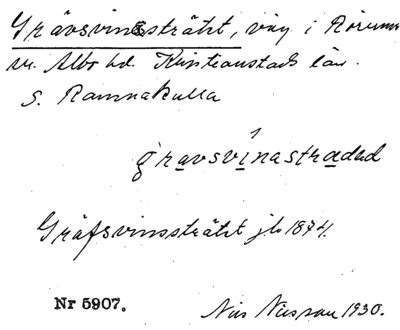 Grävsvinssträtet, väg i Rörum
sn. Albo hd. Kristianstads län.
S. Ramnakulla
gravsvinastradəd
Gräfsvinssträtet jb 1874.
Nr 5907.
Nils Nilsson 1930.